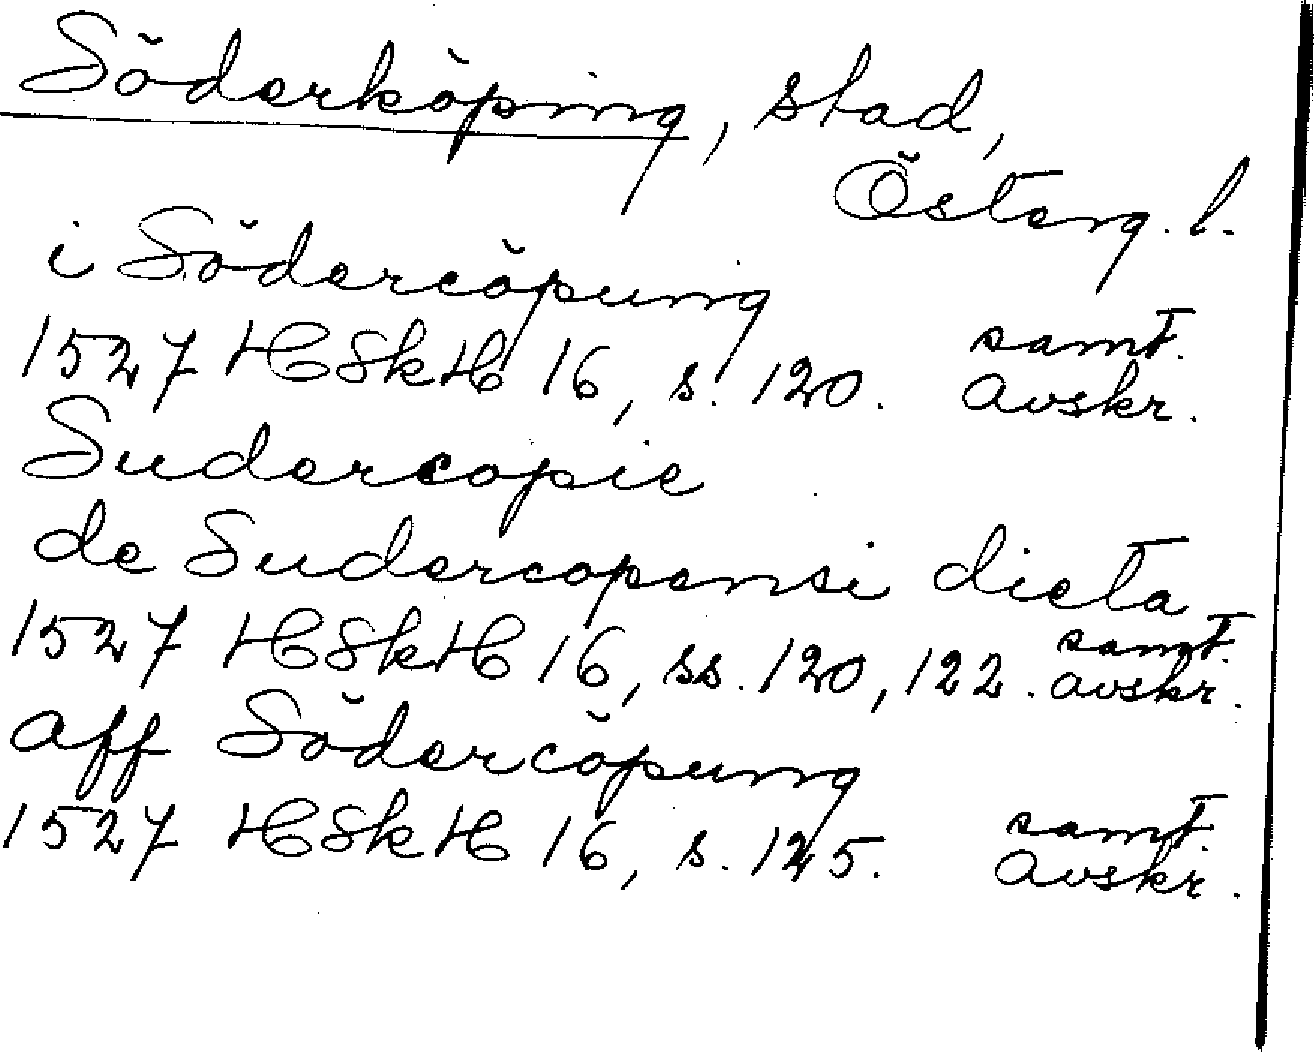 Söderköping, stad,
Österg. l.
i Södercöpung
1527 HSkH 16, s. 120. samt. avskr.
Sudercopie
de Sudercopensi dieta
1527 HSkH 16, ss. 120, 122. samt. avskr.
aff Södercöpung
1527 HSkH 16, s. 125. samt. avskr.